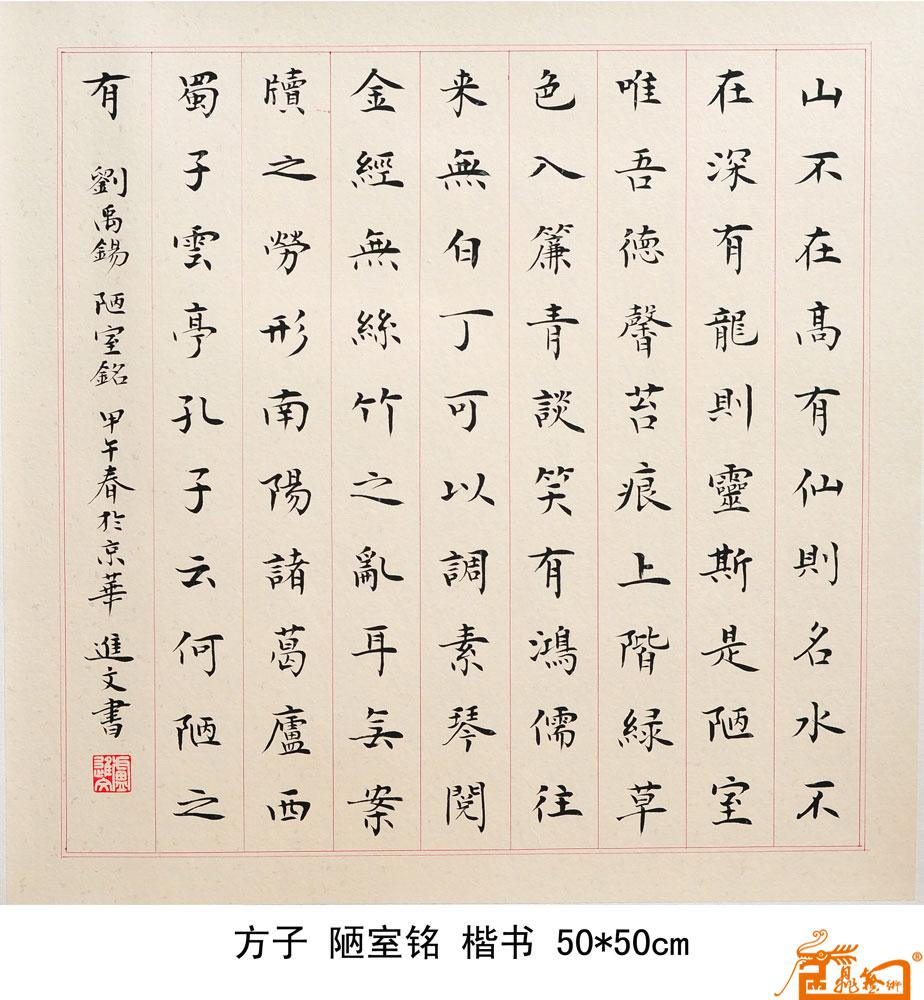 山不在高有仙則名水不
在深有龍則靈斯是陋室
唯吾德馨苔痕上階緑草
色入簾青談笑有鴻儒往
来無白丁可以調素琴閱
金經無絲竹之亂耳无案
牘之勞形南陽諸葛廬西
蜀子雲亭孔子云何陋之
有 劉禹錫 陋室銘 甲午春於京華 進文書
方子 陋室铭 楷书 50*50cm